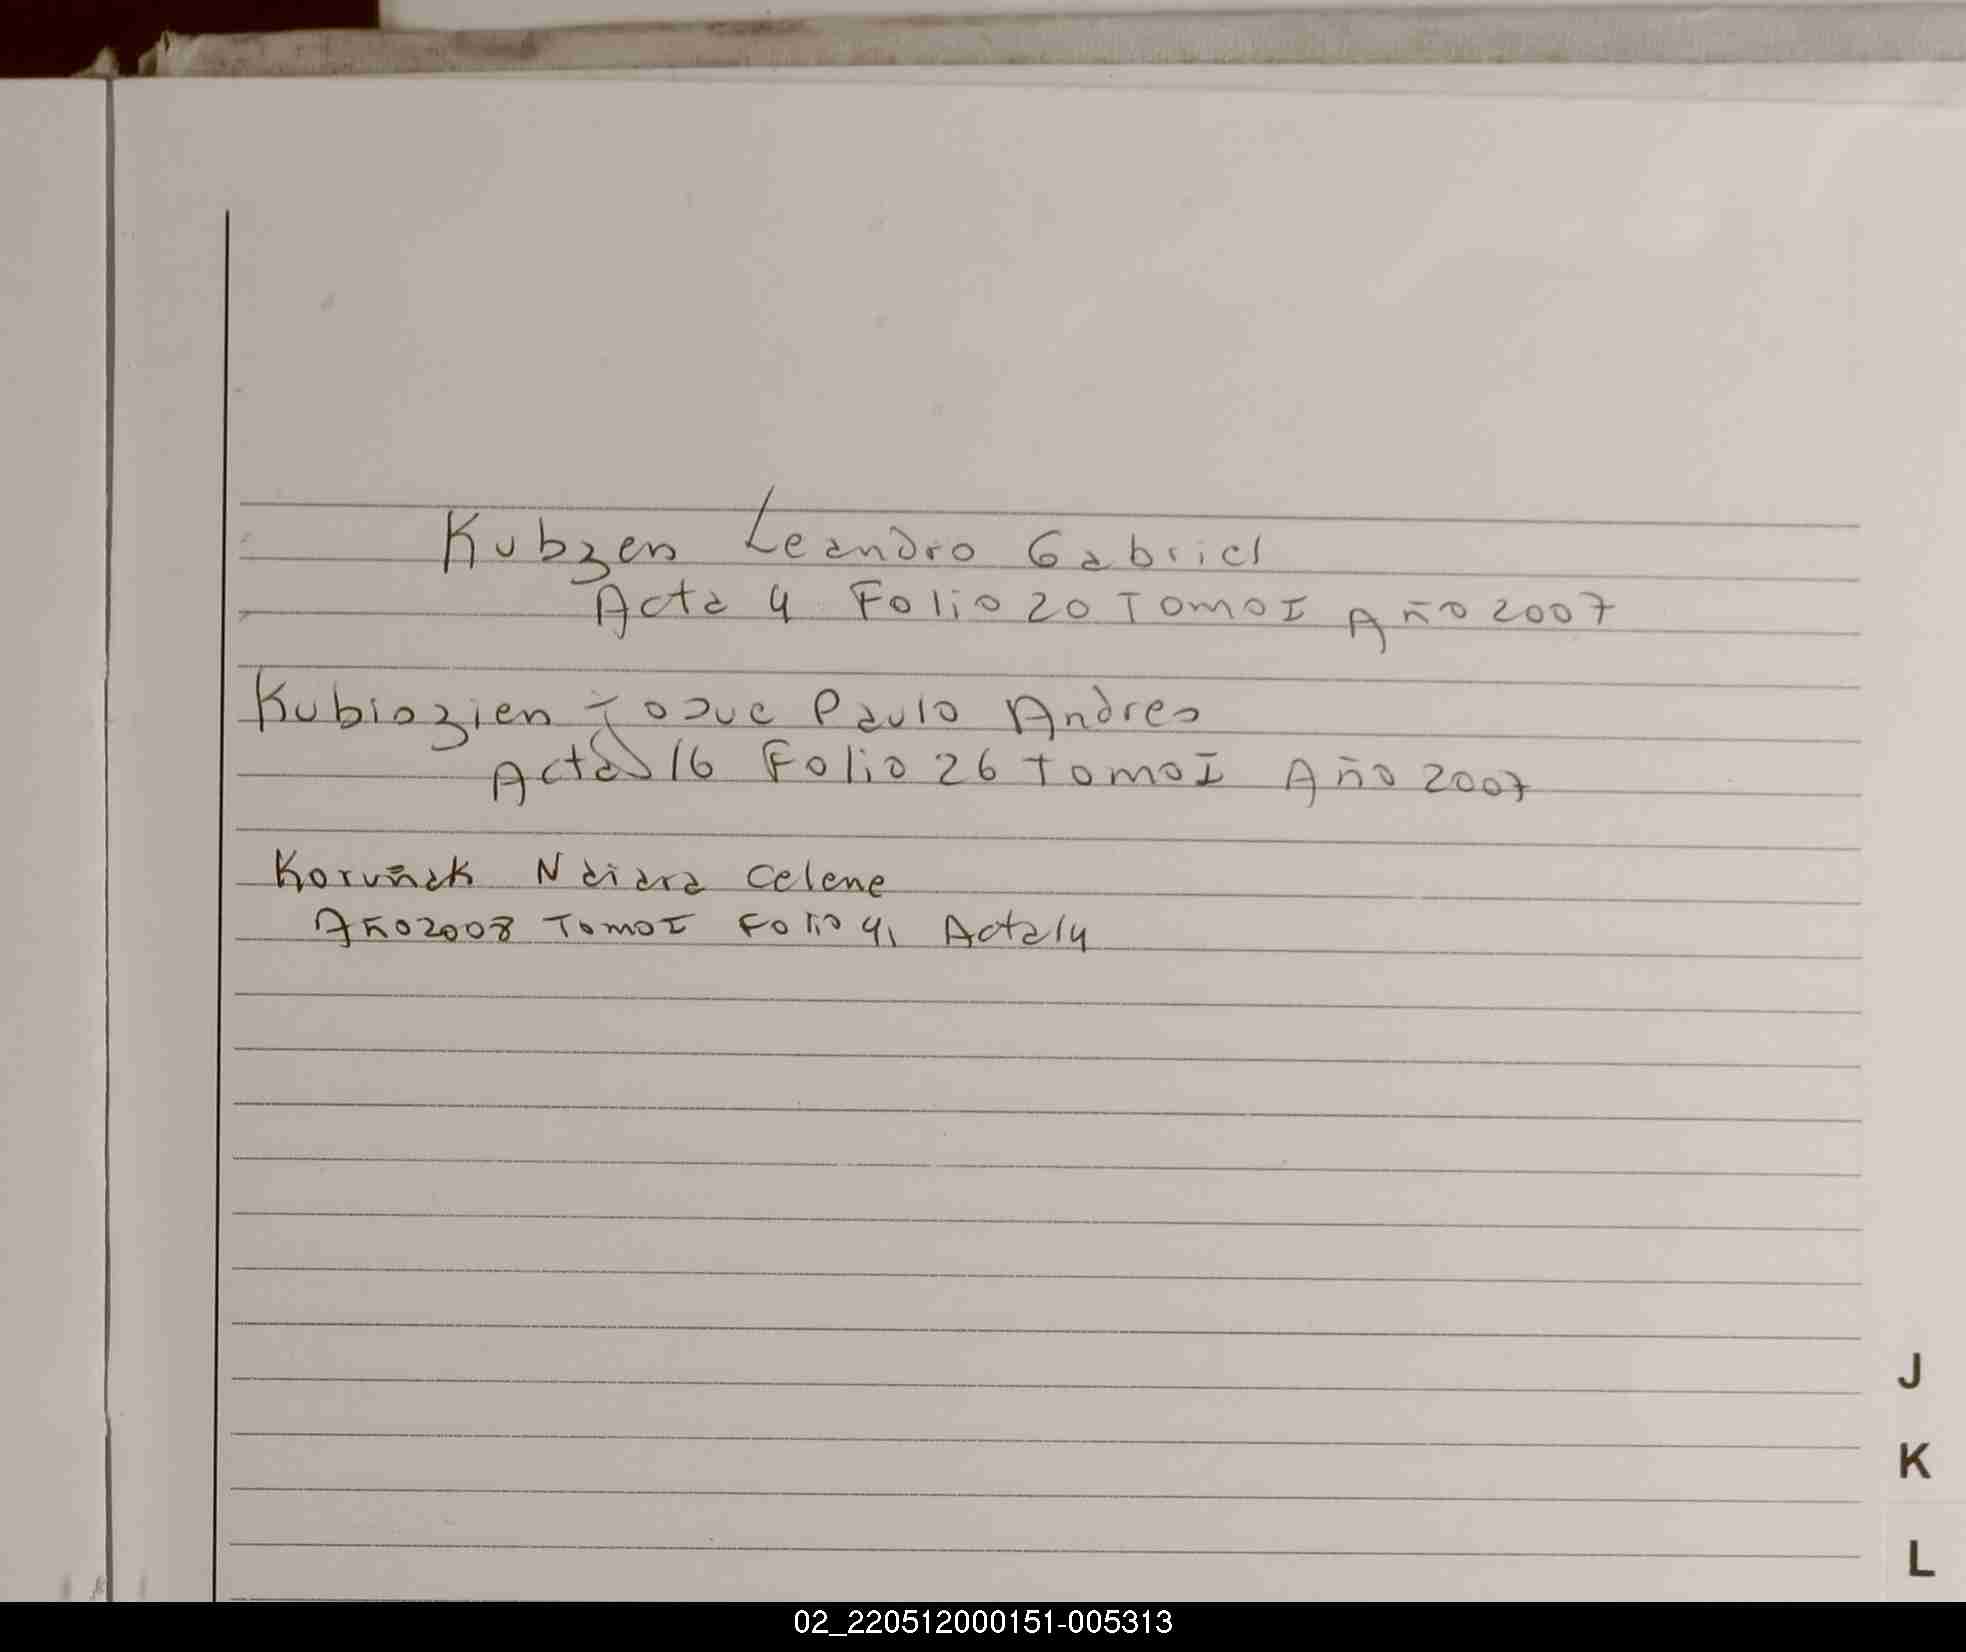 Kubzen Leandro Gabriel
Acta 4 Folio 20 Tomo I Año 2007
Kubiszien Josue Paulo Andres
Acta 16 Folio 26 Tomo I Año 2007
Koruñak Naiara Celene
Año 2008 Tomo I Folio 41 Acta 14
J
K
L
02_220512000151-005313